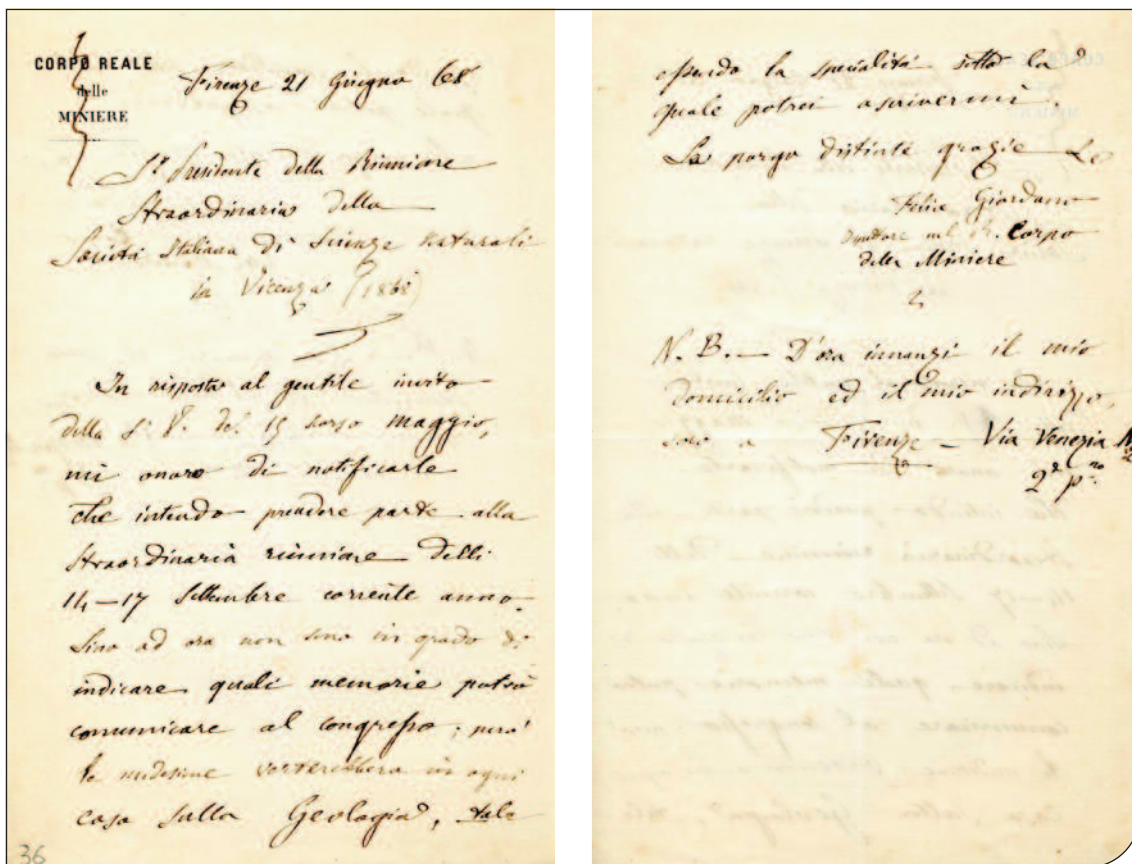 CORPO REALE
delle
MINIERE
Firenze 21 Giugno 68
Sr. Presidente della Riunione
Straordinaria della
Società Italiana di Scienze naturali
in Vicenza (1868)
In risposta al gentile invito
della S. V. del 15 scorso maggio,
mi onoro di notificarle
che intendo prendere parte alla
straordinaria riunione delli
14-17 Settembre corrente anno.
Sino ad ora non sono in grado di
indicare quali memorie potrò
comunicare al congresso; però
le medesime verterebbero in ogni
caso sulla Geologia, tale
essendo la specialità sotto la
quale potrei ascrivermi.
Le porgo distinte grazie
Felice Giordano
nel R. Corpo
delle Miniere
N. B. — D'ora innanzi il mio
domicilio ed il mio indirizzo,
sono a Firenze — Via Venezia
2º p.no
36